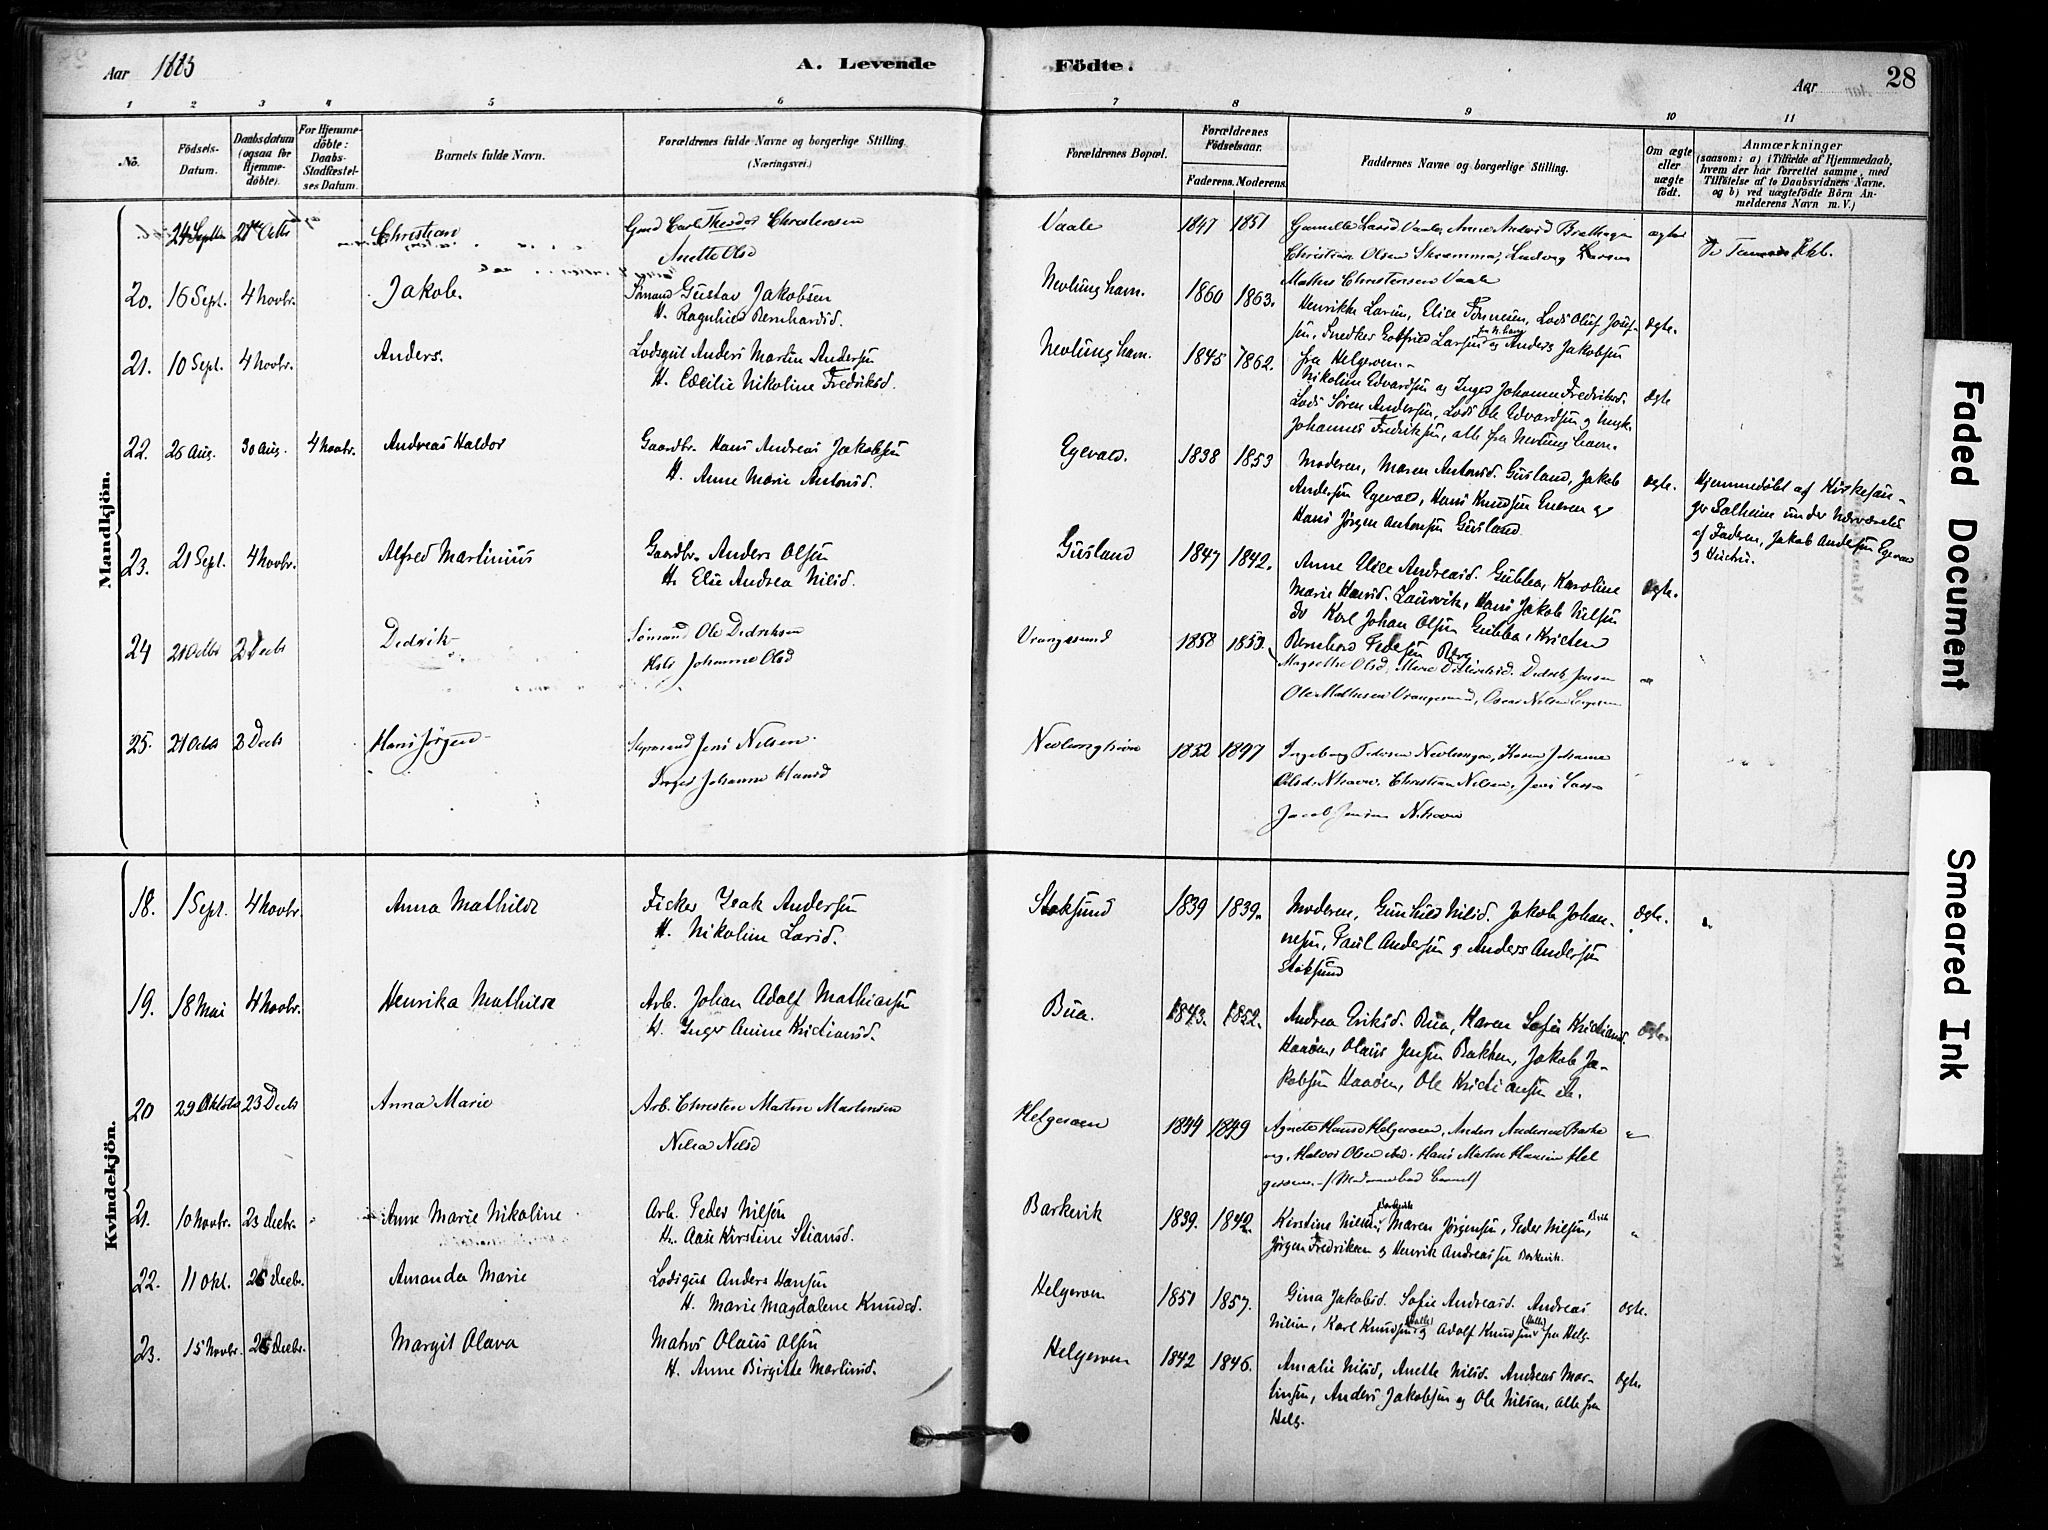 Aar 1883
A. Levende Fødte.
Aar
28
1 2 3 4 5 6 7 8 9 10 11
No.
Födsels-Datum.
Daabsdatum (ogsaa for Hjemme-döbte).
For Hjemme-döbte: Daabs-Stadfæstel-ses Datum.
Barnets fulde Navn.
Forældrenes fulde Navne og borgerlige Stilling (Næringsvei.)
Forældrenes Bopæl.
Forældrenes Födselsaar.
Faderens. Moderens.
Faddernes Navne og borgerlige Stilling.
Om ægte eller uægte födt.
Anmærkninger
(saasom: a) i Tilfælde af Hjemmedaab, hvem der har forrettet samme, med Tilföielse af to Daabsvidners Navne. og b) ved uægtefödte Börn An-melderens Navn m. V.)
Mandkjön.
24 Septbr 21 Octbr Christian
Gmd Carl Theodor Christensen
Anette Olsd
Vaale 1847 1851
Christian Olsen Ludvig Larsen
Mathis Christensen Vaale
ægte
20. 16 Sept. 4 Novbr. Jakob.
Sömand Gustav Jakobsen
H. Ragnhild Bernhardsd.
Nevlunghavn. 1860 1863.
Henrikke Larsen, Elise Lods Oluf Josef-
sen, Snedker Gotfried Larsen og Anders Jakobsen
fra Helgeroen.
Ægte.
21. 10 Sept. 4 Novbr. Anders.
Lodsgut Anders Martin Andersen
H. Cæcilie Nikoline Fredriksd.
Nevlunghavn. 1845 1862.
Nikoline Edvardsen og Inger Johanne Fredriksd.
Lods Søren Andersen, Lods Ole Edvardsen og
Johannes Fredriksen, alle fra Nevlunghavn.
Ægte
22. 26 Aug. 30 Aug. 4 Novbr. Andreas Haldor
Gaardbr. Hans Andreas Jakobsen
H. Anne Marie Antonsd.
Egevald. 1838 1853
Moderen, Maren Antonsd. Gusland, Jakob
Andersen Egevald, Hans Knudsen og
Hans Jørgen Antonsen Gusland.
Ægte.
Hjemmedøbt af Kirkesan-
ger Solheim under Nærværelse
af Faderen, Jakob Andersen Egevald
og Hustru.
23. 21 Sept. 4 Novbr. Alfred Martinius
Gaardbr. Anders Olsen
H. Elie Andrea Nilsd.
Gusland 1847 1842.
Anne Elise Andreasd. Gubba, Karoline
Marie Hansd. Laurvik, Hans Jakob Nilsen
do Karl Johan Olsen Gubba, Kristen
Bernhard Pedersen
Ægte.
24 21 Octbr 2 Decbr Didrik
Sömand Ole Didriksen
Johanne Olsd
Vrangsund 1858 1853.
Didrik Jensen
Ole Mathisen Vrangsund, Oscar Nilsen
25. 21 Octbr 2 Decbr Hans Jørgen
Styrmand Jens Nilsen
Inger Johanne Hansd
Nevlunghavn 1852 1847
Ingeborg Pedersen Nevlunghavn, Karen Johanne
Olsd. Nhavn. Christian Nilsen, Jens
Jacob Jensen Nhavn
Kvindekjön.
18. 1 Sept. 4 Novbr Anna Mathilde
Fisker Isak Andersen
H. Nikoline Larsd.
Stoksund 1839 1839.
Moderen, Gunhild Nilsd. Jakob Johan-
nesen, Paul Andersen og Anders Andersen
Stoksund
Ægte.
19. 18 Mai 4 Novbr. Henrika Mathilde
Arb. Johan Adolf Mathiasen
H. Inger Amine Kristiansd.
Bua. 1843. 1852.
Andrea Eriksd. Bua, Karen Sofie Kristiansd.
Haaøen, Olaus Jensen Bakken, Jakob Ja-
kobsen Haaøen, Ole Kristiansen ib.
Ægte
20 29 Oktober 23 Decbr Anna Marie
Arb. Christen Martin Martinsen
Nilia Nilsd
Helgeroen 1844 1849
Agnete Hansd Helgeroen, Anders Andersen
Halvor Olsen ibd. Hans Martin Hansen Hel
21. 10 Novbr. 23 Decbr. Anne Marie Nikoline
Arb. Peder Nilsen
H. Aase Kirstine Stiansd.
Barkevik 1839. 1842
Kirstine Nilsd, Barkevik Maren Jørgensen, Peder Nilsen,
Jørgen Fredriksen og Henrik Andreassen Barkevik.
22. 11 Okt. 26 Decbr. Amanda Marie
Lodsgut Anders Hansen
H. Marie Magdalene Knudsd.
Helgeroen 1851 1857.
Gina Jakobsd. Sofie Andreasd. Andreas
Nilsen, Karl Knudsen og Adolf Knudsen fra Helg.
Ægte.
23. 15 Novbr. 26 Decbr. Margit Olava
Matros Olaus Olsen
H. Anne Birgitte Martinsd.
Helgeroen 1842 1846.
Amalie Nilsd, Anette Nilsd. Andreas Mar-
tinsen, Anders Jakobsen og Ole Nilsen, alle fra
Helg.
Ægte.
Faded Document
Smeared Ink